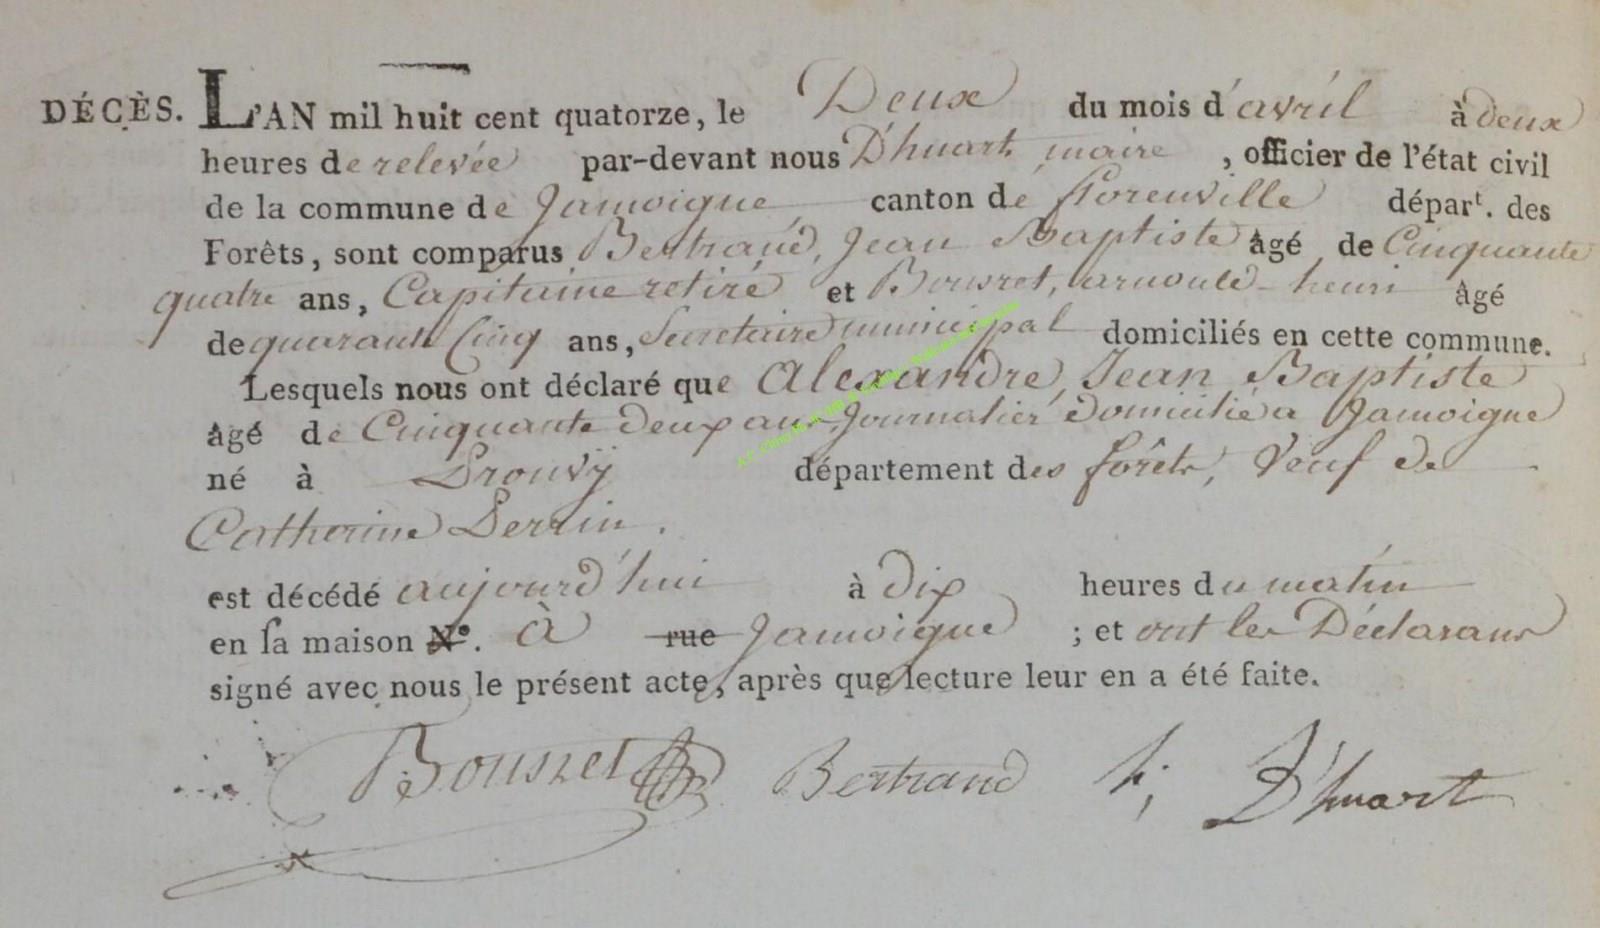 DÉCÈS. L'AN mil huit cent quatorze, le Deux du mois d'avril à deux
heures de relevée par-devant nous D'huart maire, officier de l'état civil
de la commune de Jamoigne canton de florenville épar^t. des
Forêts, sont comparus Bertrand, Jean Baptiste âgé de Cinquante
quatre ans, Capitaine retiré et Bousret, arnould-henri âgé
de quarante Cinq ans, Secretaire municipal domiciliés en cette commune.
Lesquels nous ont déclaré que Alexandre, Jean Baptiste
âgé de Cinquante deux ans Journalier domicilié a Jamoigne
né à Prouvÿ département des forêts, Veuf de
Catherine Perrin.
est décédé aujourd'hui à dix heures du matin
en sa maison N°. à rue Jamoigne ; et ont les Déclarans
signé avec nous le présent acte, après que lecture leur en a été faite.
Bousret Bertrand h; D'huart